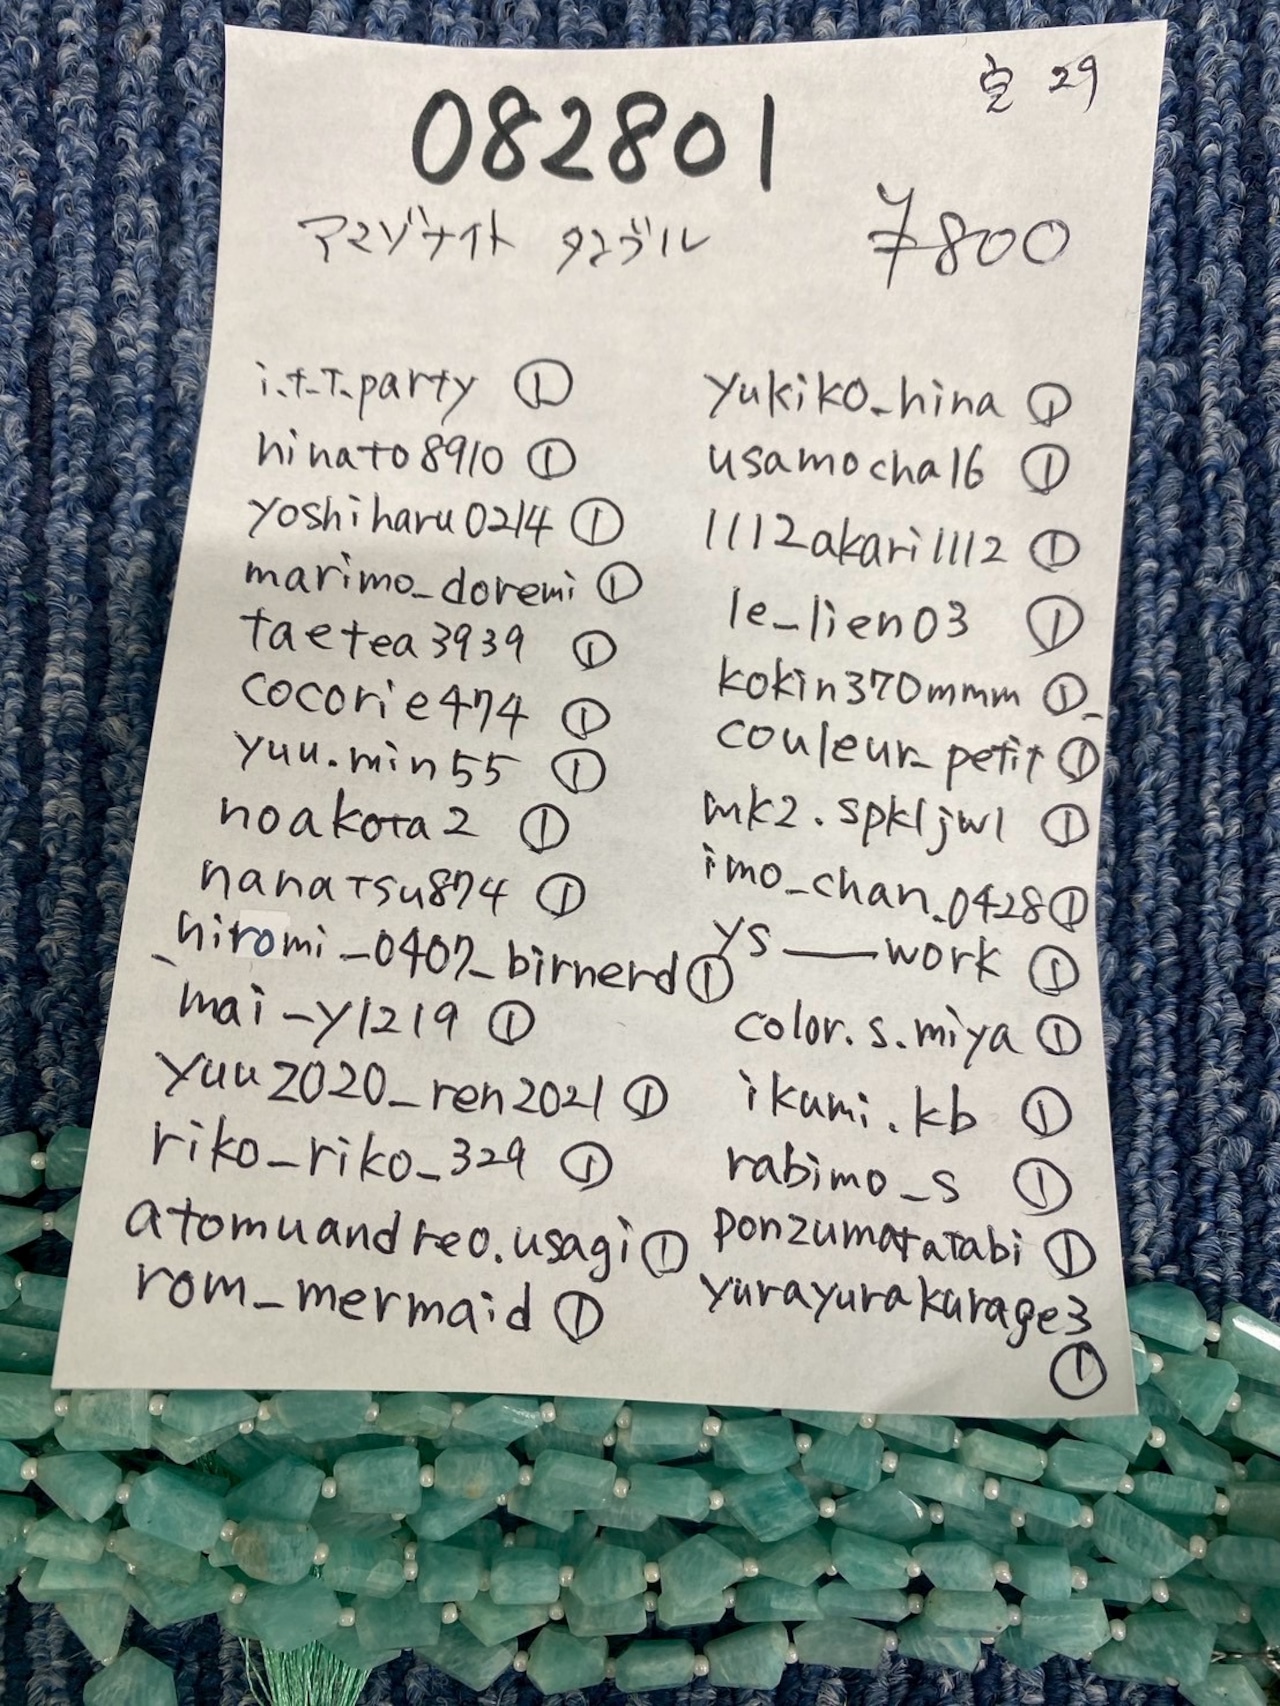 宝 29
082801
アマゾナイト タンブル ¥800
i.t_T.party ①
hinato8910 ①
yoshiharu0214 ①
marimo_doremi ①
taetea3939 ①
cocorie474 ①
yuu.min55 ①
noakota2 ①
nanatsu874 ①
_hiromi_0407_birnerd ①
mai_y1219 ①
yuu2020_ren2021 ①
riko_riko_329 ①
atomuandreo.usagi ①
rom_mermaid ①
yukiko_hina ①
usamocha16 ①
1112akari1112 ①
le_lien03 ①
kokin370mmm ①_
couleur_petit ①
mk2.spkljwl ①
imo_chan_0428 ①
ys___work ①
color.s.miya ①
ikumi.kb ①
rabimo_s ①
ponzumatatabi ①
yurayurakurage3
①